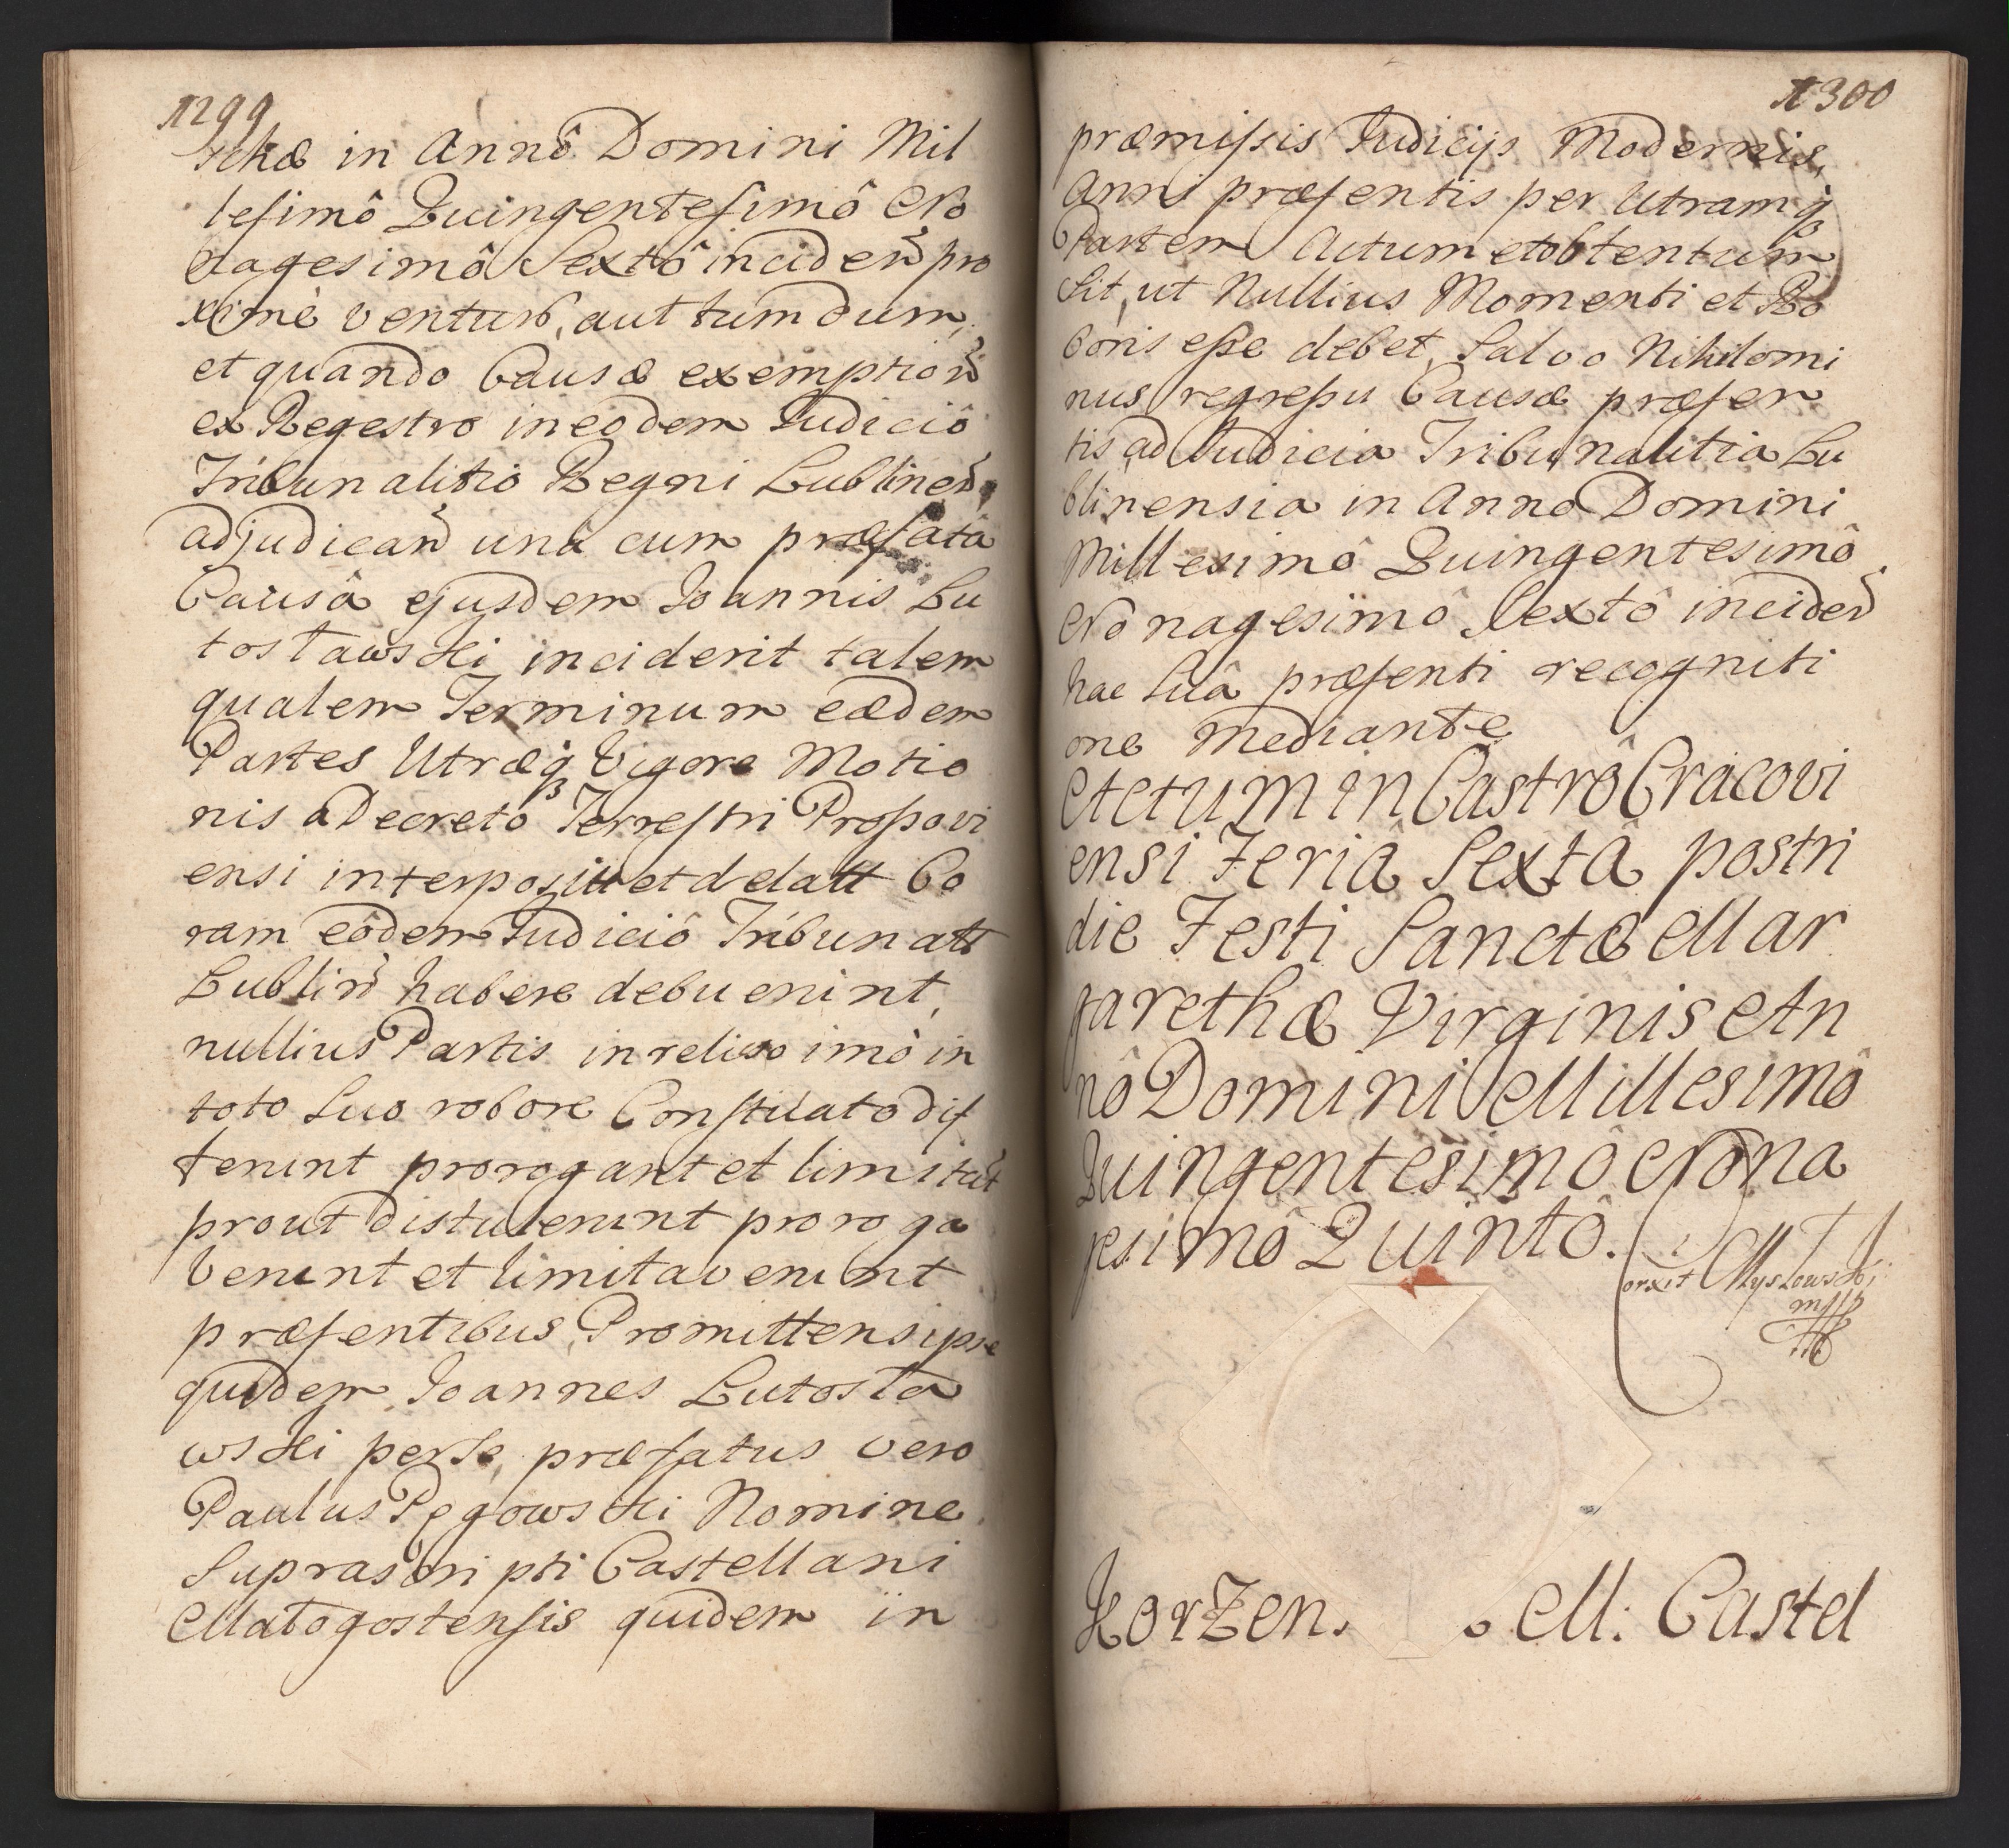 1299
schæ in Annô Domini Mil
lesimô Quingentesimô No
nagesimô Sextô inciden̄ pro
ximè venturô, aut tum dum,
et quando Causæ exemption̄
ex Regestro in eodem Judiciô
Tribunalitio Regni Lublinen̄,
adjudican̄ unâ cum præfatâ
Causâ ejusdem Joannis Lu
tostawski inciderit talem
qualem Terminum eædem
Partes Utræq; Vigore Motio
nis a Decretô Terrestri Prossovi
ensi interposit̄ et delatt Co
ram eôdem Judiciô Tribunatt
Lublin̄ habere debuerint,
nullius Partis in reliquo imò in
toto Suo robore Conservato dif
ferunt prorogant et limitāt
prout distulerunt proroga
verunt et limitaverunt
præsentibus, Promittens ipse
quidem Joannes Lutosta
wski per se, præfatus vero
Paulus Pęgowski Nomine
Suprascripti Castellani
Małogostensis quidem in
1300
præmissis Judicijs Modernis,
Anni præsentis per Utramq;
Partem Actum et obtentum
sit, ut Nullius Momenti et Ro
boris esse debet, Salvo Nihilomi
nus regressu Causæ præsen
tis ad Judicia Tribunalitia Lu
blinensia in Anno Domini
Millesimô Quingentesimô
Nonagesimô Sextô inciden̄
hac Suâ præsenti recogniti
one mediante
Actum in Castrô Cracovi
ensi Feriâ Sextâ postri
die Festi Sanctæ Mar
garethæ Virginis An
nô Domini Millesimô
Quingentesimô Nona
gesimô Quintô.
Correxit Mysłowski
mpp
Korzen. M: Castel